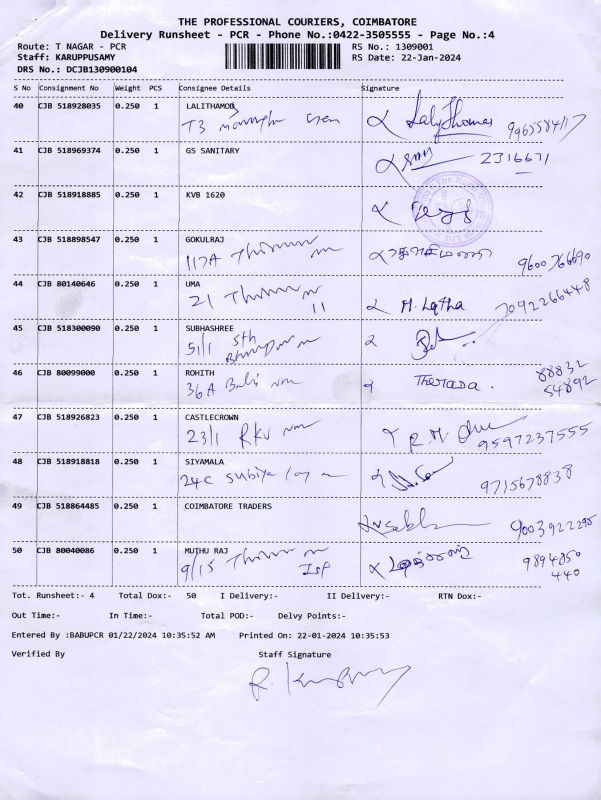 THE PROFESSIONAL COURIERS, COIMBATORE
Delivery Runsheet - PCR - Phone No.:0422-3505555 - Page No.:4
Route: T NAGAR - PCR RS No.: 1309001
Staff: KARUPPUSAMY RS Date: 22-Jan-2024
DRS No.: DCJB130900104
S No Consignment No Weight PCS Consignee Details Signature
40 CJB 518928035 0.250 1 LALITHAMOD
T3
41 CJB 518969374 0.250 1 GS SANITARY
2316671
42 CJB 518918885 0.250 1 KVB 1620
43 CJB 518898547 0.250 1 GOKULRAJ
117A 9600766690
44 CJB 80140646 0.250 1 UMA
21 11 M. Latha 7092266448
45 CJB 518300090 0.250 1 SUBHASHREE
51/1 5th
46 CJB 80099000 0.250 1 ROHITH 88832
36A Theresa. 54892
47 CJB 518926823 0.250 1 CASTLECROWN
23/1 RKV R.M. 9597237555
48 CJB 518918818 0.250 1 SIYAMALA
24C Subiya 9715678838
49 CJB 518864485 0.250 1 COIMBATORE TRADERS
9003922295
50 CJB 80040086 0.250 1 MUTHU RAJ
9/15 9894850
440
Tot. Runsheet:- 4 Total Dox:- 50 I Delivery:- II Delivery:- RTN Dox:-
Out Time:- In Time:- Total POD:- Delvy Points:-
Entered By :BABUPCR 01/22/2024 10:35:52 AM Printed On: 22-01-2024 10:35:53
Verified By Staff Signature